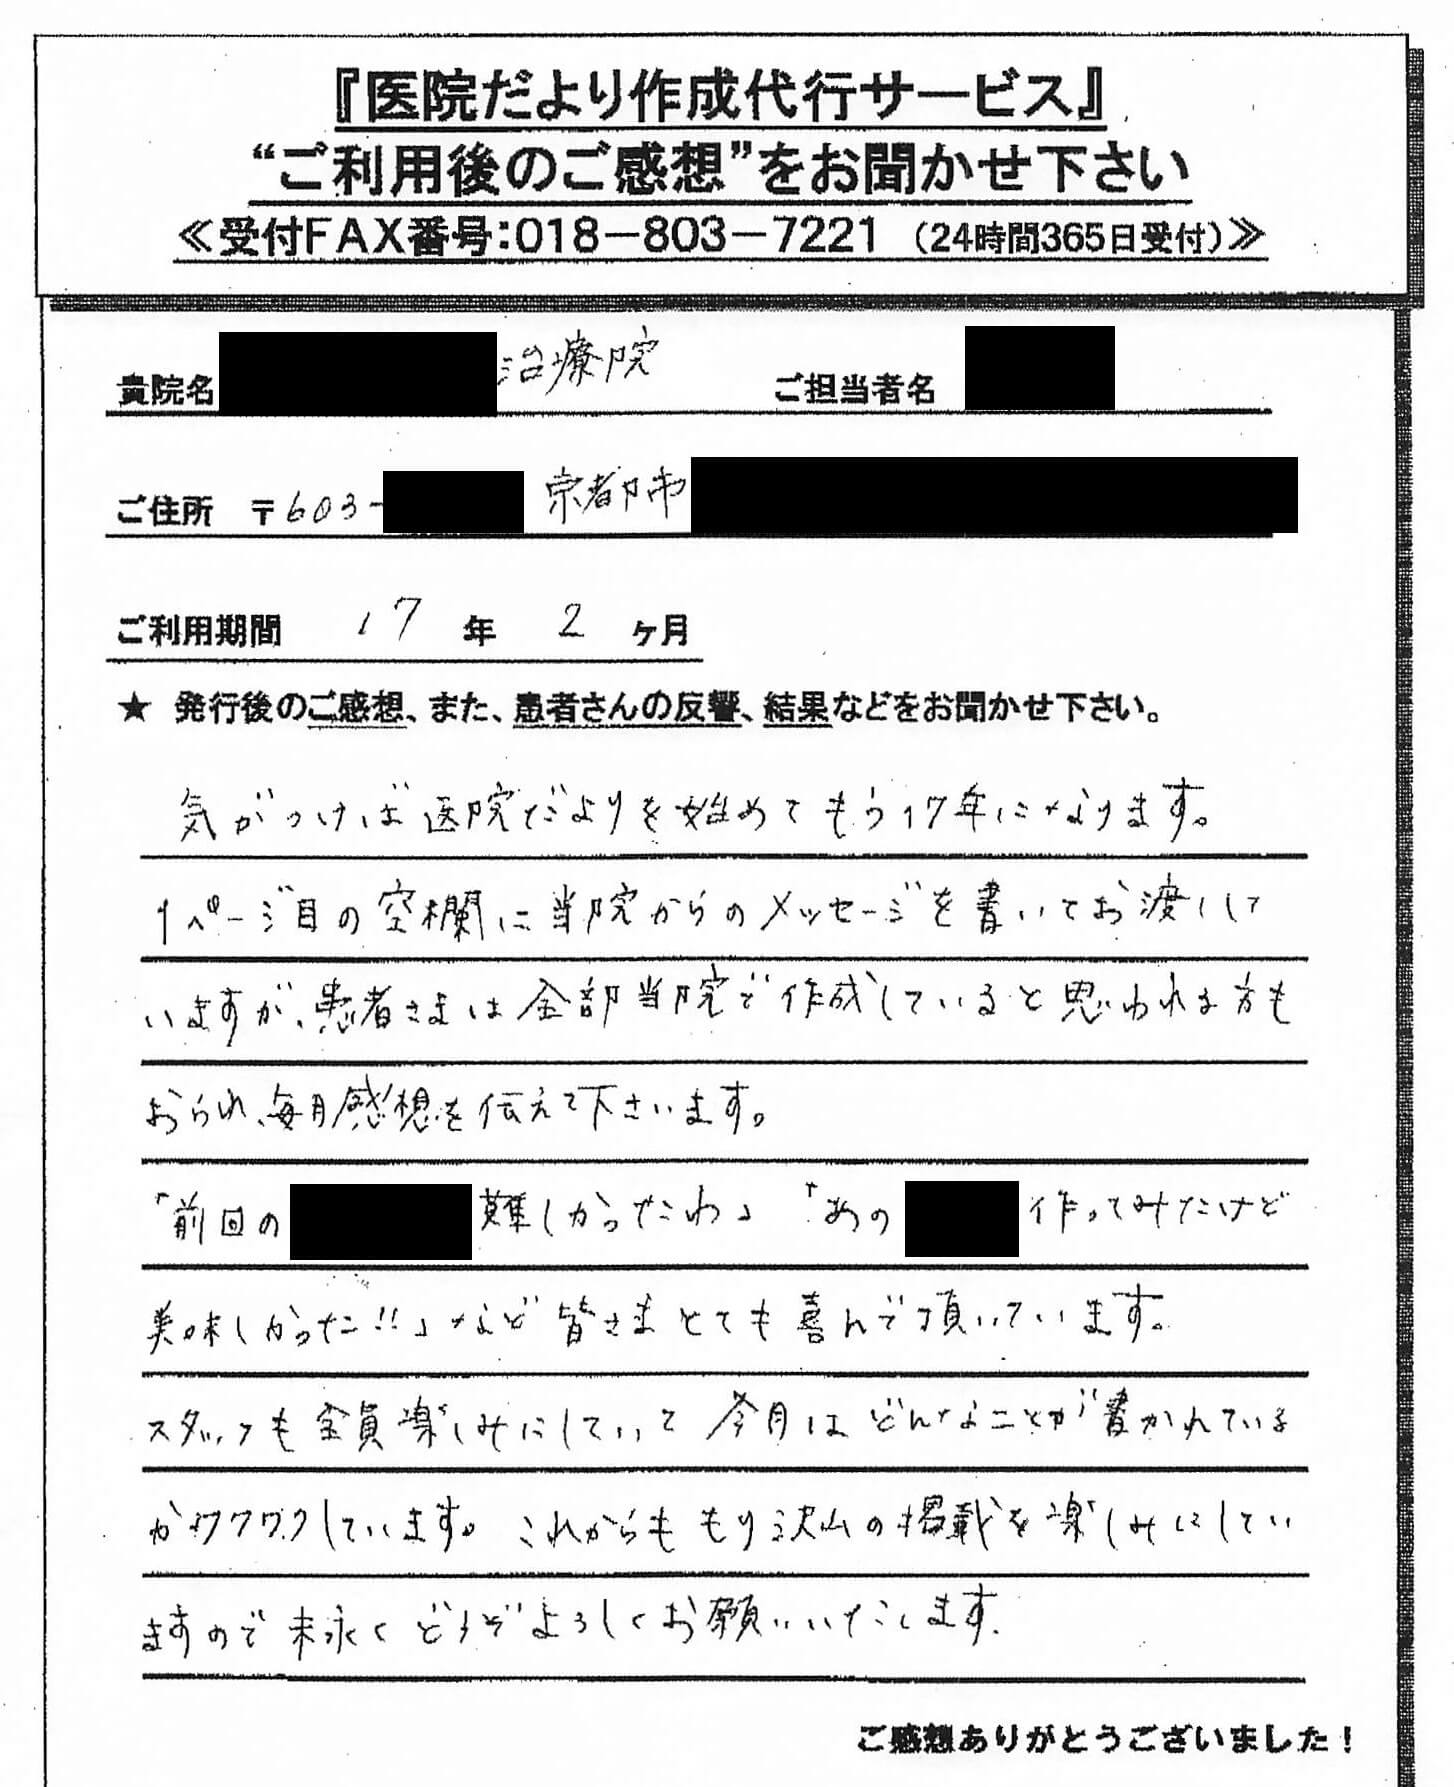 『医院だより作成代行サービス』
“ご利用後のご感想”をお聞かせ下さい
≪受付FAX番号：018－803－7221（24時間365日受付）≫
貴院名 治療院 ご担当者名
ご住所 〒603- 京都市
ご利用期間 17 年 2 ヶ月
★ 発行後のご感想、また、患者さんの反響、結果などをお聞かせ下さい。
気がつけば医院だよりを始めてもう17年になります。
1ページ目の空欄に当院からのメッセージを書いてお渡しして
いますが、患者さまは全部当院で作成していると思われる方も
おられ、毎月感想を伝えて下さいます。
「前回の 難しかったわ」「あの 作ってみたけど
美味しかった!!」など皆さまとても喜んで頂いています。
スタッフも全員楽しみにしていて今月はどんなことが書かれている
かワクワクしています。これからももり沢山の掲載を楽しみにしてい
ますので末永くどうぞよろしくお願いいたします.
ご感想ありがとうございました！